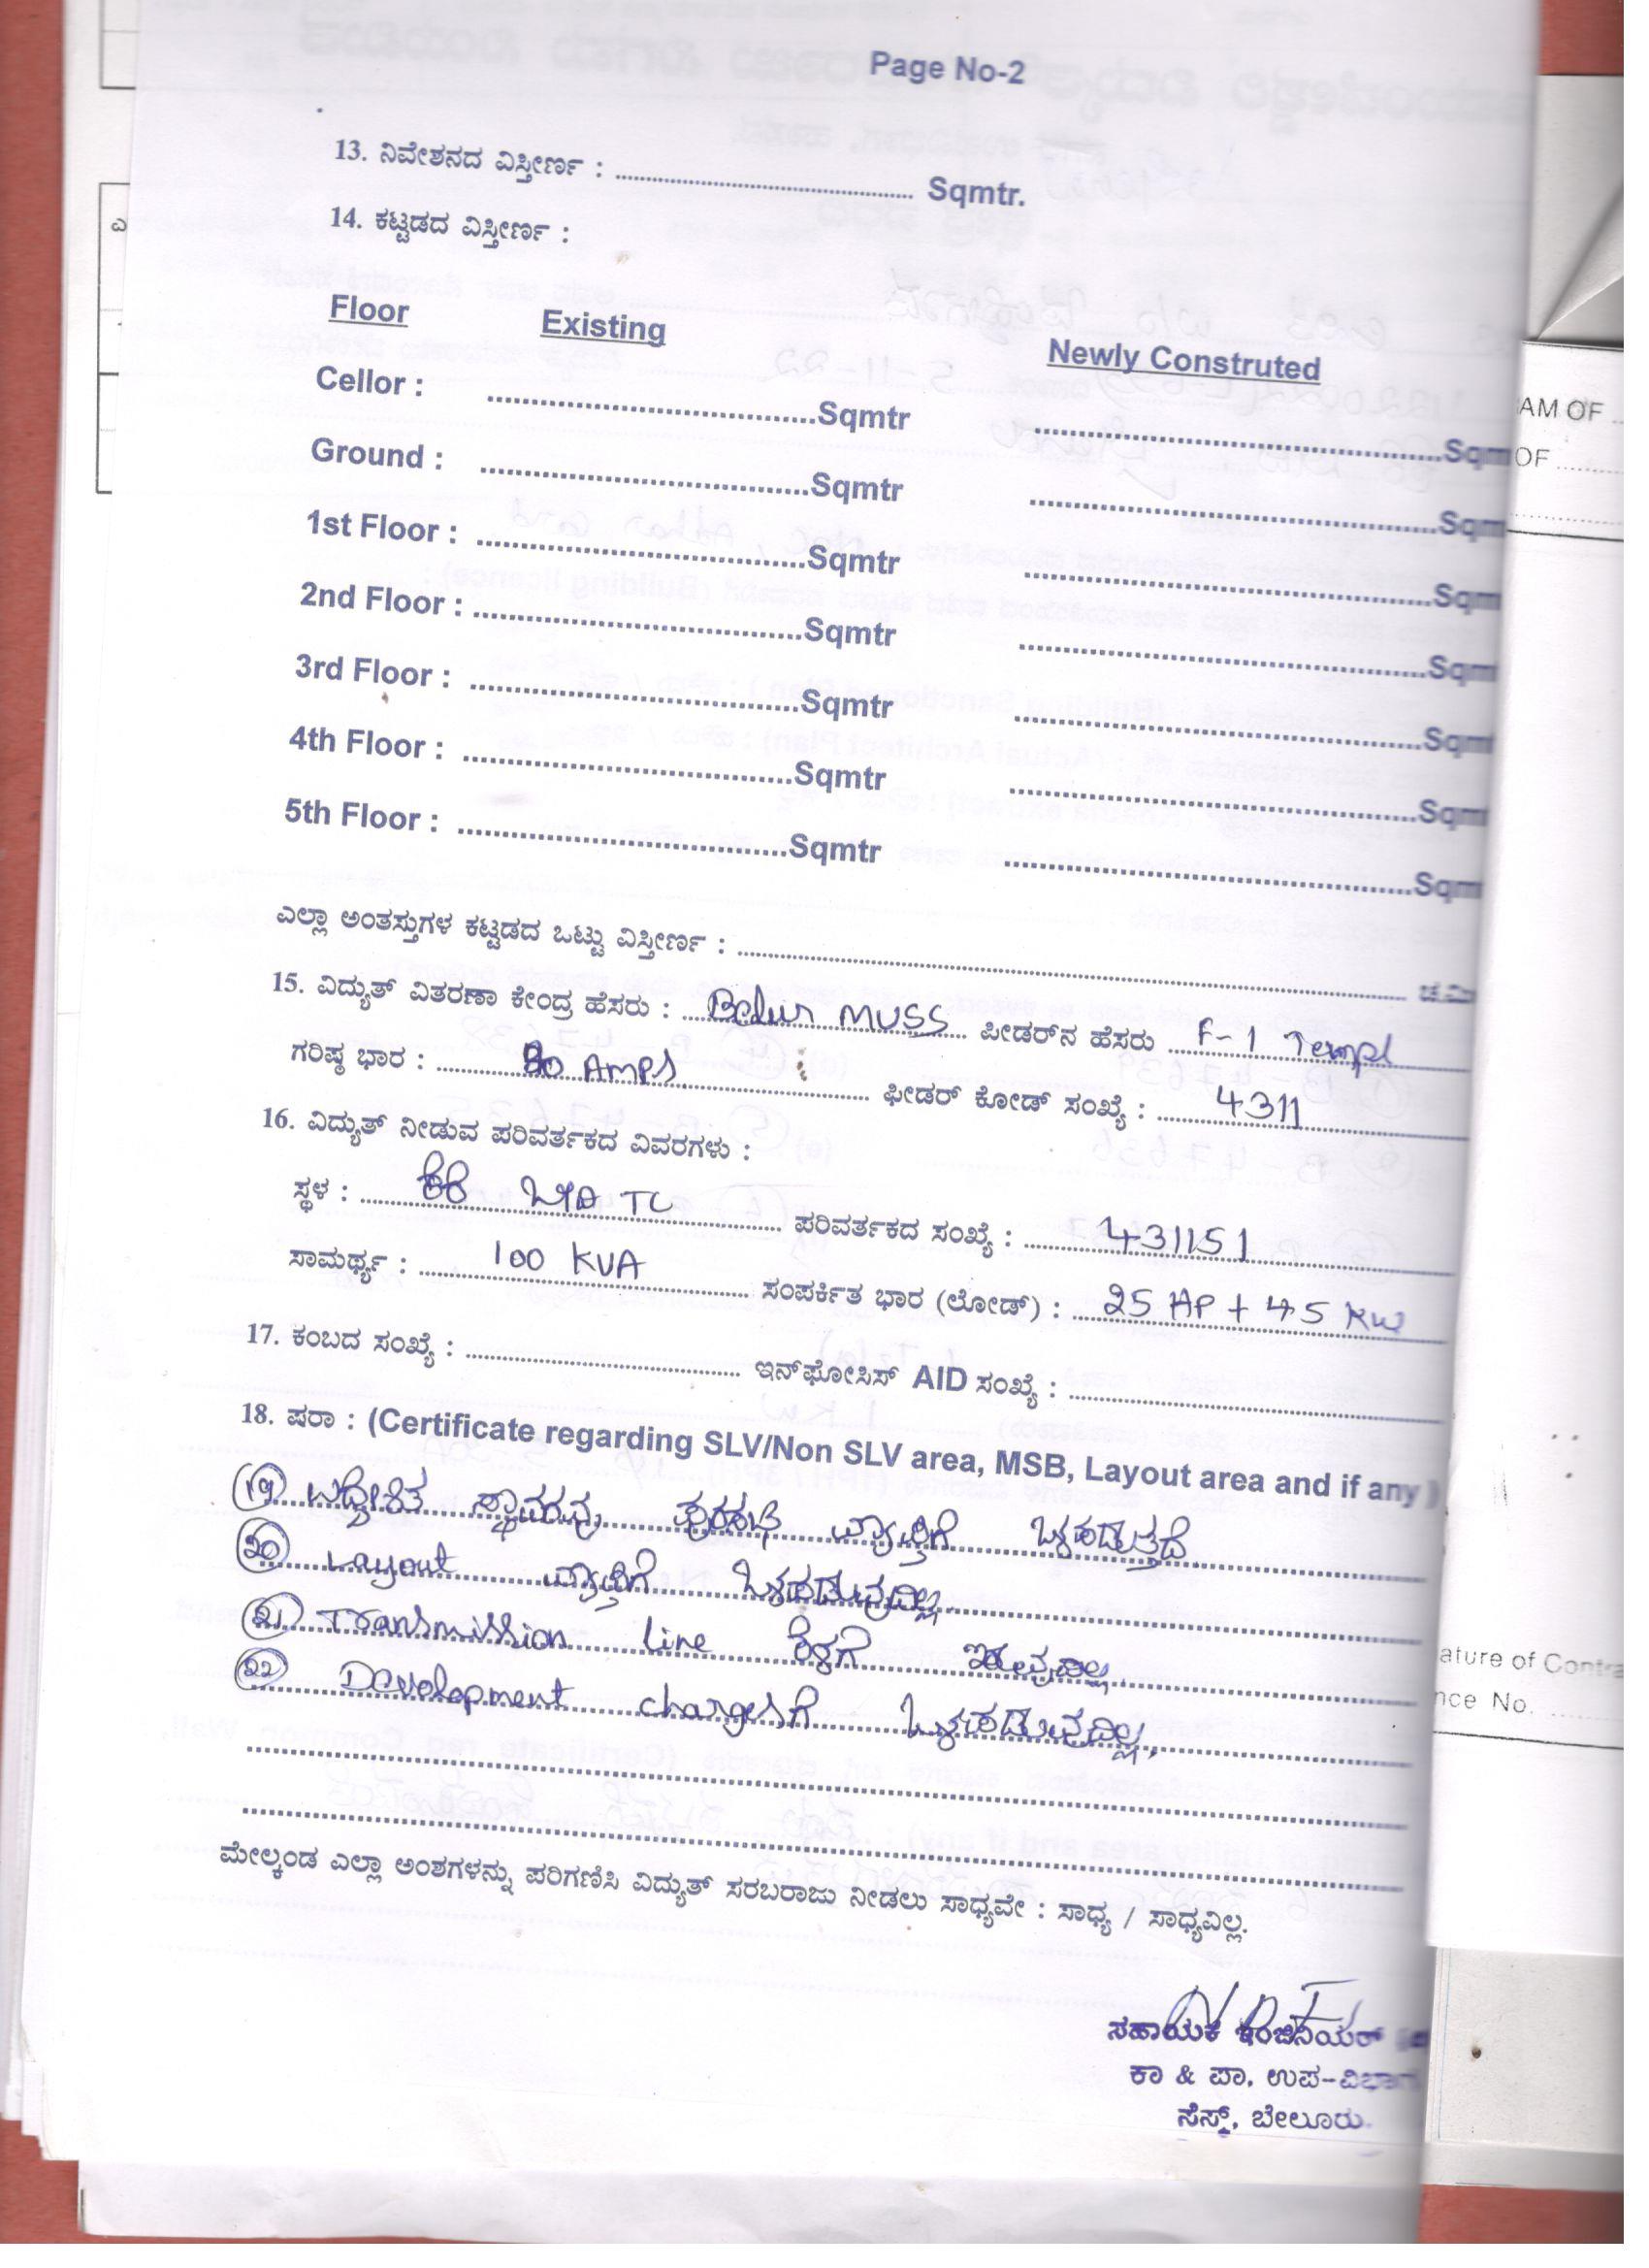 Page No-2
13. ನಿವೇಶನದ ವಿಸ್ತೀರ್ಣ : ........ Sqmtr.
14. ಕಟ್ಟಡದ ವಿಸ್ತೀರ್ಣ :
Floor Existing Newly Construted
Cellor : ........Sqmtr ........Sqm
Ground : ........Sqmtr ........Sqm
1st Floor : ........Sqmtr ........Sqm
2nd Floor : ........Sqmtr ........Sqm
3rd Floor : ........Sqmtr ........Sqm
4th Floor : ........Sqmtr ........Sqm
5th Floor : ........Sqmtr ........Sqm
ಎಲ್ಲಾ ಅಂತಸ್ತುಗಳ ಕಟ್ಟಡದ ಒಟ್ಟು ವಿಸ್ತೀರ್ಣ : ........ ಚ.ಮಿ
15. ವಿದ್ಯುತ್ ವಿತರಣಾ ಕೇಂದ್ರ ಹೆಸರು : Belur MUSS ಪೀಡರ್‌ನ ಹೆಸರು F-1 Templ
ಗರಿಷ್ಠ ಭಾರ : 80 Amps ಫೀಡರ್ ಕೋಡ್ ಸಂಖ್ಯೆ : 4311
16. ವಿದ್ಯುತ್ ನೀಡುವ ಪರಿವರ್ತಕದ ವಿವರಗಳು :
ಸ್ಥಳ : TC ಪರಿವರ್ತಕದ ಸಂಖ್ಯೆ : 431151
ಸಾಮರ್ಥ್ಯ : 100 KVA ಸಂಪರ್ಕಿತ ಭಾರ (ಲೋಡ್) : 25 HP + 45 KW
17. ಕಂಬದ ಸಂಖ್ಯೆ : ........ ಇನ್‌ಫೋಸಿಸ್ AID ಸಂಖ್ಯೆ : ........
18. ಷರಾ : (Certificate regarding SLV/Non SLV area, MSB, Layout area and if any )
(19) ಉದ್ದೇಶಿತ ಸ್ಥಾವರವು ಪುರಸಭೆ ವ್ಯಾಪ್ತಿಗೆ ಒಳಪಡುತ್ತದೆ
(20) Layout ವ್ಯಾಪ್ತಿಗೆ ಒಳಪಡುವುದಿಲ್ಲ.
(21) Transmission line ಕೆಳಗೆ ಇರುವುದಿಲ್ಲ.
(22) Development chargesಗೆ ಒಳಪಡುವುದಿಲ್ಲ.
ಮೇಲ್ಕಂಡ ಎಲ್ಲಾ ಅಂಶಗಳನ್ನು ಪರಿಗಣಿಸಿ ವಿದ್ಯುತ್ ಸರಬರಾಜು ನೀಡಲು ಸಾಧ್ಯವೇ : ಸಾಧ್ಯ / ಸಾಧ್ಯವಿಲ್ಲ.
ಸಹಾಯಕ ಇಂಜಿನಿಯರ್
ಕಾ & ಪಾ. ಉಪ-ವಿಭಾಗ
ಸೆಸ್ಕ್, ಬೇಲೂರು.
AM OF
OF
ature of Contra
nce No.